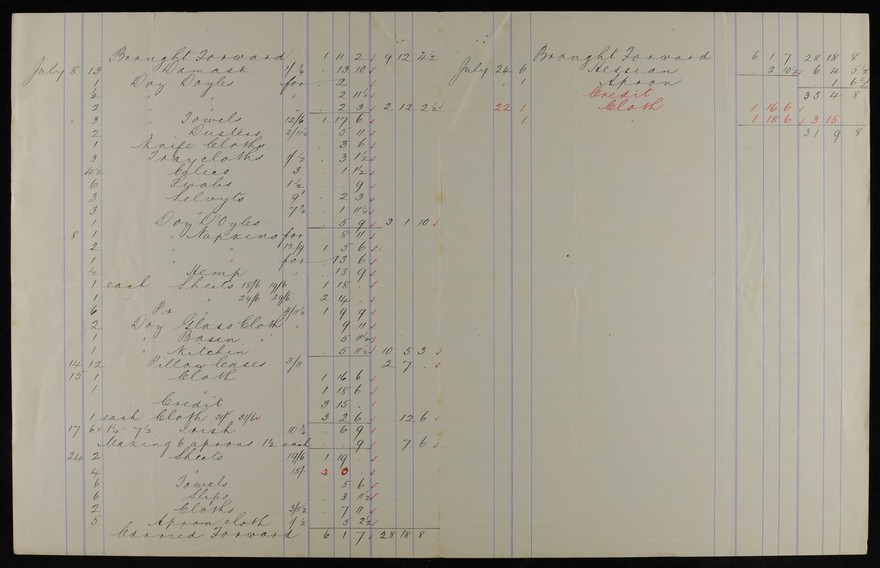 Brought Forward 1 11 2 9 12 4½
July 8 13 Damask 1/ 13 10
1 Doz Doyles for 2
½ " " " 2 11½
2 " " 2 3 2 12 2½
" 3 " Towels 12/6 1 17 6
2 " Dusters 2/11½ 5 11
1 Knife Cloths 3 6
3 Traycloths 1/½ 3 1½
4½ Calico 3 1 1½
6 Swabs 1½ 9
3 Selvyts 9 2 3
3 " 7½ 1 11½
1 Doz D'Oyles 5 9 3 1 10
8 1 " Napkins for 8 11
2 " " 12/9 1 5 6
1 " " for 13 6
½ Hemp " 13 9
1 each Sheets 18/6 19/6 1 18
1 " " 24/6 29/6 2 14
6 Pr " 4/11½ 1 9 9
2 Doz Glass Cloth " 9 11
1 " Basin " 5 11½
1 " Kitchin 5 11½ 10 5 3
14 12 Pillow Cases 3/11 2 7
15 1 Cloth 1 16 6
1 " 1 18 6
Credit 3 15
1 each Cloth 31/ 31/6 3 2 6 12 6
17 Irish 10¾ 6 9
Making 6 aprons 1½ each 9 7 6
24 2 Sheets 19/6 1 19
4 " 15/- 3 0
6 Towels 5 6
6 Slips 3 11½
2 Cloths 3/11½ 7 11
5 Apron cloth 1/½ 5 2½
Carried Forward 6 1 7 28 18 8
Brought Forward 6 1 7 28 18 8
July 24 6 Hessian 2 10½ 6 4 5½
" 1 Apron 1 6½
Credit 35 4 8
22 1 Cloth 1 16 6
1 " 1 18 6 3 15
31 9 8